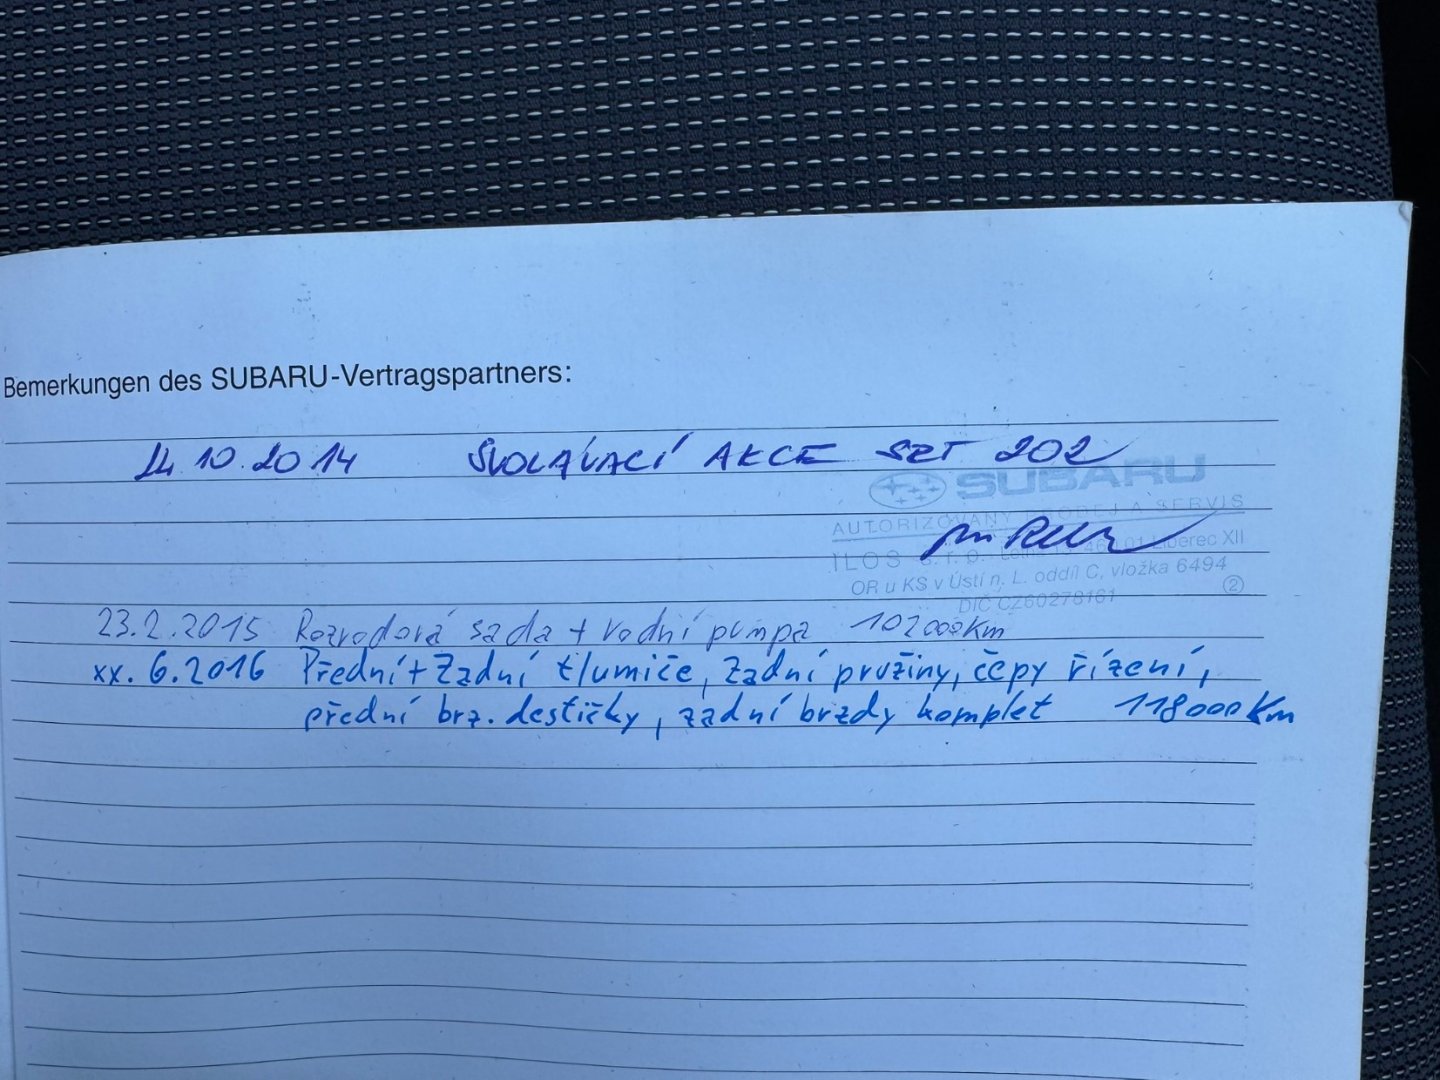 Bemerkungen des SUBARU-Vertragspartners:
14.10.2014 SVOLÁVACÍ AKCE SZT 202
SUBARU
AUTORIZOVANÝ PRODEJ A SERVIS
ILOS s. r. o. 01 Liberec XII
OR u KS v Ústí n. L. oddíl C, vložka 6494
DIČ CZ60278161 2
23.2.2015 Rozvodová sada + vodní pumpa 102000Km
xx. 6.2016 Přední + Zadní tlumiče, Zadní pružiny, čepy řízení,
přední brz. destičky, zadní brzdy komplet 118000Km